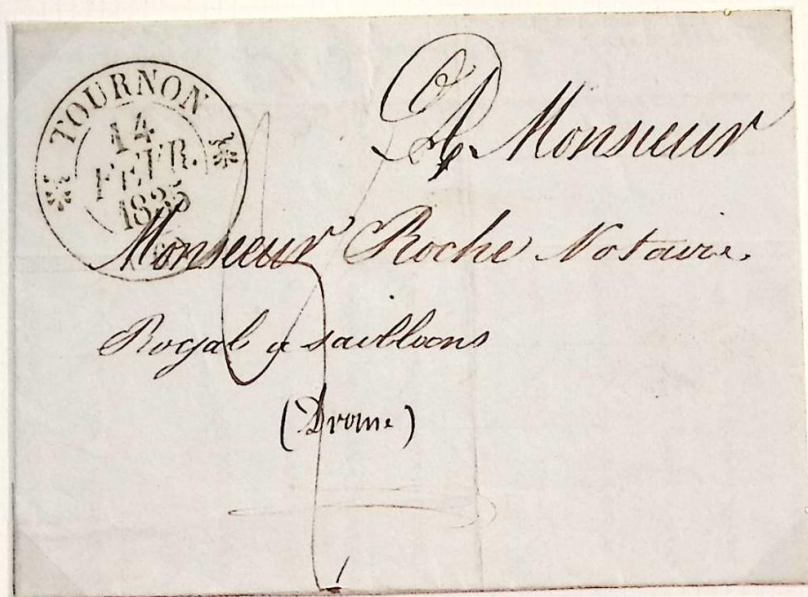 TOURNON
14
FEVR.
1835
A Monsieur
Monsieur Roche Notaire
Royal a saillians
(Drome)